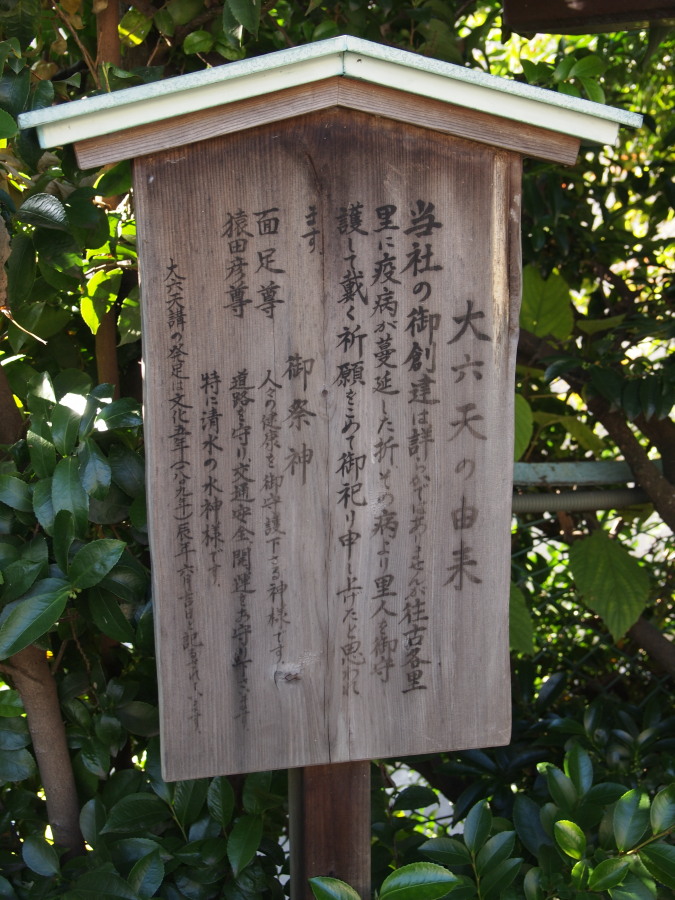 大六天の由来
当社の御創建は詳らかではありませんが往古各里
里に疫病が蔓延した折、その病より里人を御守
護して戴く祈願をこめて御祀り申し上げたと思われ
ます。
御祭神
面足尊 人々の健康を御守護下さる神様です。
猿田彦尊 道路を守り、交通安全開運を
特に清水の水神様です。
大六天講の発足は文化五年 辰年六月吉日と記